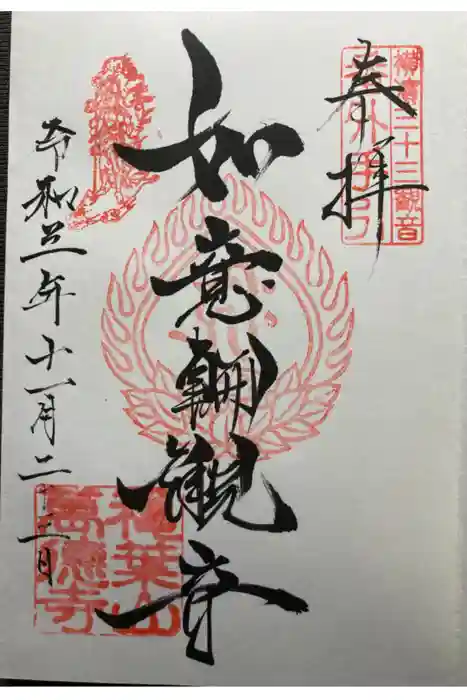 奉拝
三十三観音
如意輪観音
令和三年十一月二十三日
葉山
萬德寺